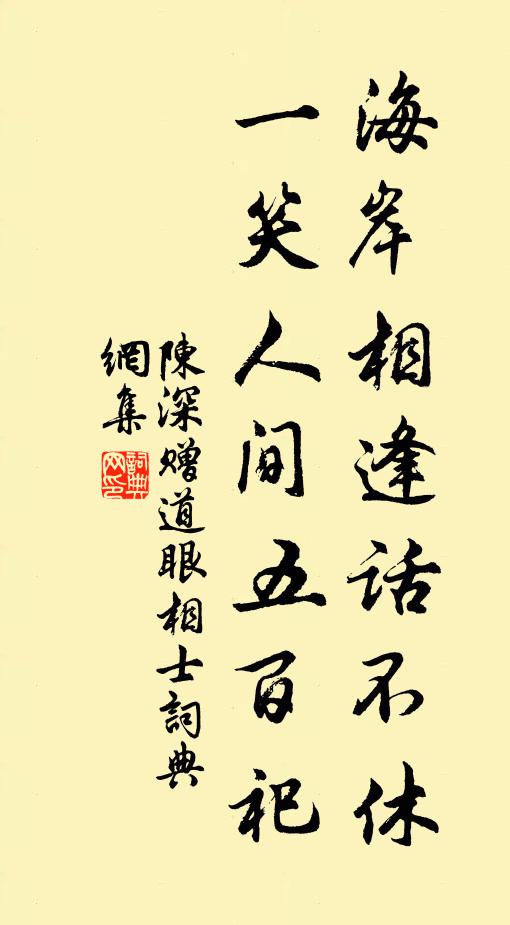 海岸相逢話不休
一笑人間五百祀
陳深赠道眼相士詞典
網集
詞典網印